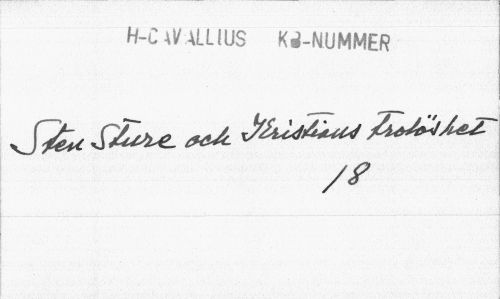 H-CAVALLIUS KB-NUMMER
Sten Sture och Kristians trolöshet
18